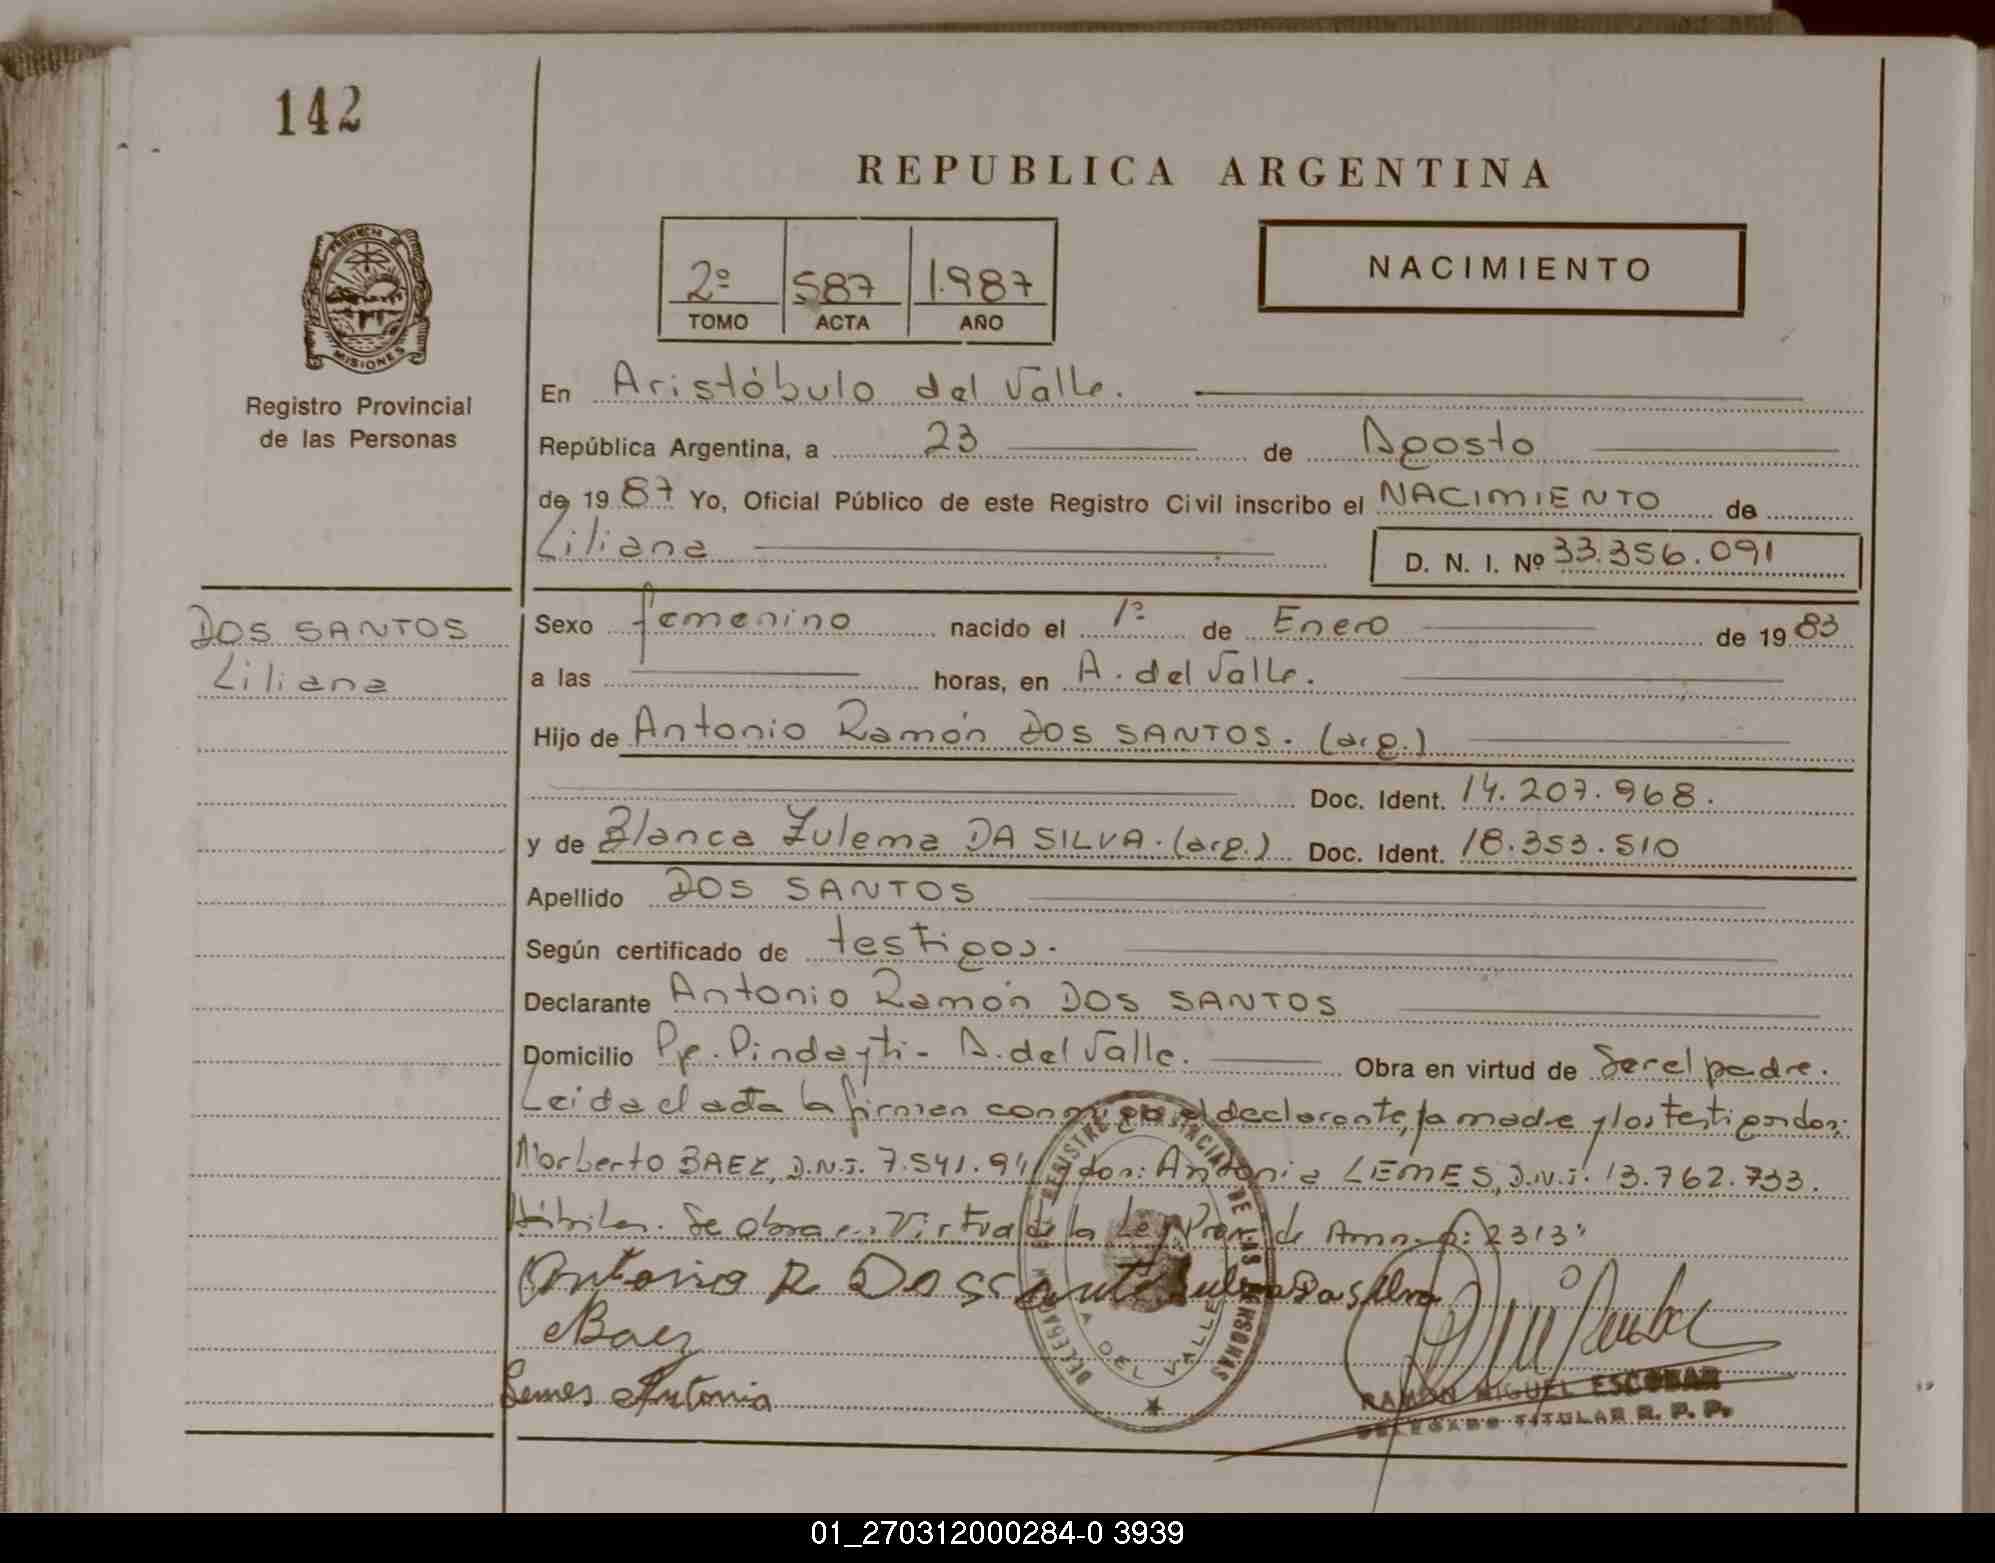 142
REPUBLICA ARGENTINA
PROVINCIA DE MISIONES
Registro Provincial
de las Personas
NACIMIENTO
2º 587 1.987
TOMO ACTA AÑO
En Aristóbulo del Valle.
República Argentina, a 23 de Agosto
de 1987 Yo, Oficial Público de este Registro Civil inscribo el NACIMIENTO de
Liliana D. N. I. Nº 33.356.091
DOS SANTOS
Liliana
Sexo femenino nacido el 1º de Enero de 1983
a las horas, en A. del Valle.
Hijo de Antonio Ramón DOS SANTOS. (arg.)
Doc. Ident. 14.207.968.
y de Blanca Zulema DA SILVA. (arg.) Doc. Ident. 18.353.510
Apellido DOS SANTOS
Según certificado de testigos.
Declarante Antonio Ramón DOS SANTOS
Domicilio Pje. Pindayti - A. del Valle. Obra en virtud de Ser el padre.
Leida el acta la firman conmigo el declarante, la madre y los testigos don:
Norberto BAEZ, D.N.I. 7.541.94 y don: Antonia LEMES, D.N.I. 13.762.733.
Hábiles. Se obra en Virtud de la Ley Prov. de Amn. 2313"
Antonio R Dos Santo Zulema Da Silva
Baez
Lemes Antonia
REGISTRO PROVINCIAL DE LAS PERSONAS
A DEL VALLE
RAMON MIGUEL ESCOBAR
DELEGADO TITULAR R. P. P.
01_270312000284-0 3939